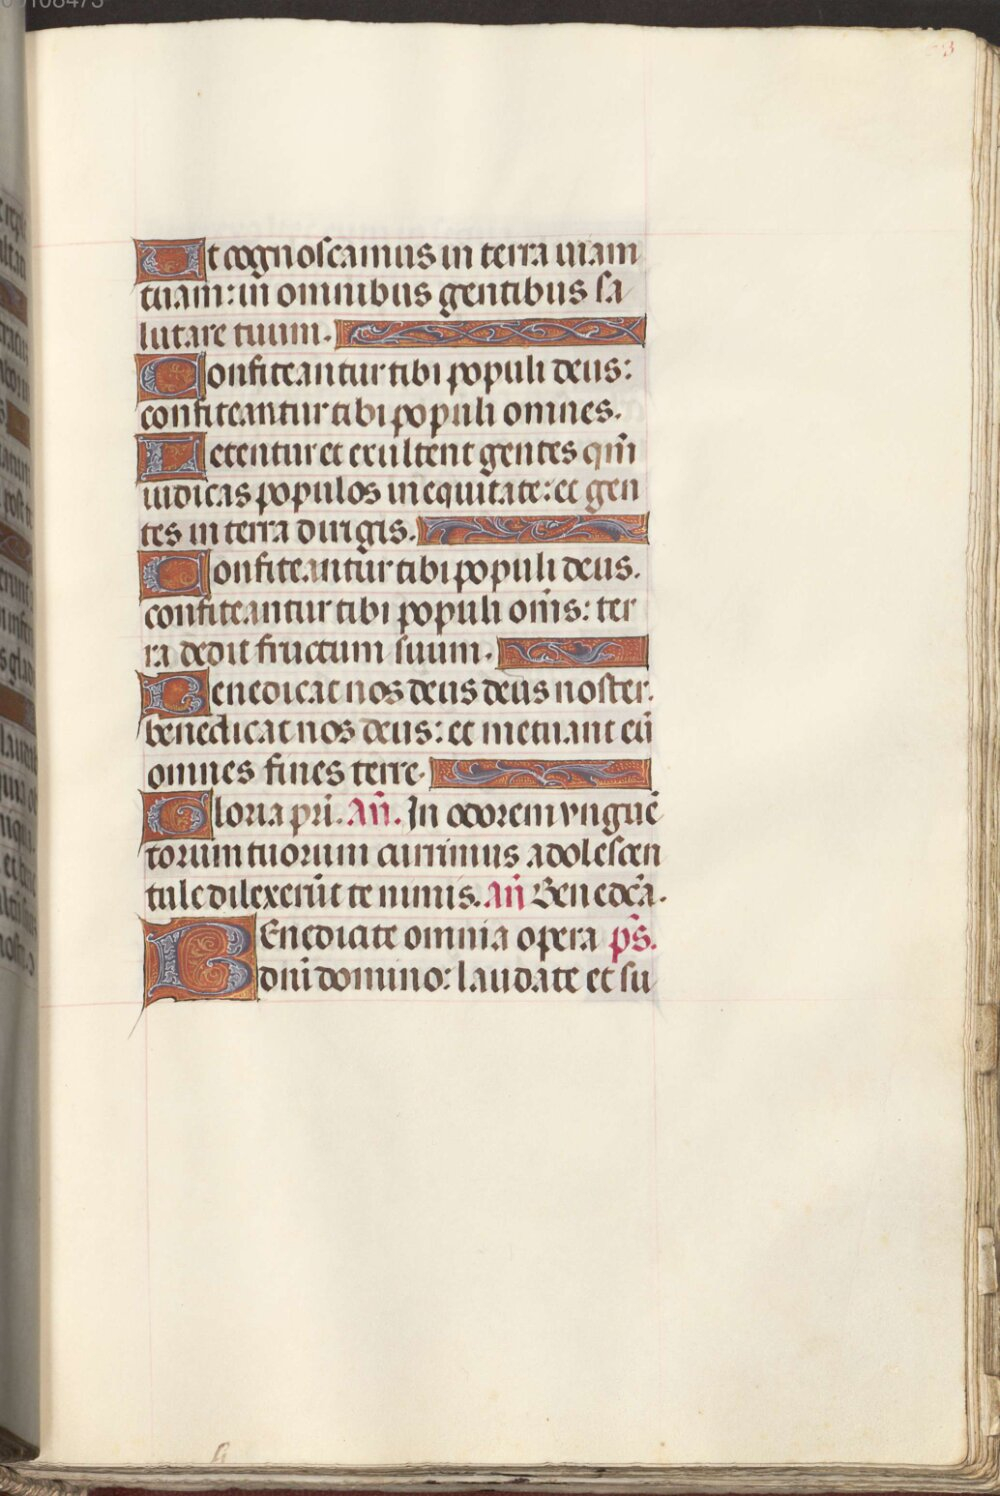 Ut cognoscamus in terra uiam
tuam: in omnibus gentibus sa
lutare tuum.
Confiteantur tibi populi deus:
confiteantur tibi populi omnes.
Letentur et exultent gentes qm̄
iudicas populos in equitate: et gen
tes in terra dirigis.
Confiteantur tibi populi deus.
confiteantur tibi populi om̄s: ter
ra dedit fructum suum.
Benedicat nos deus deus noster.
benedicat nos deus: et metuant eū
omnes fines terre.
Gloria pr̄i. Añ. In odorem vnguē
torum tuorum currimus adolescen
tule dilexerūt te nimis. Añ Benedc̄a.
BEnedicite omnia opera ps̄.
dn̄i domino: laudate et su